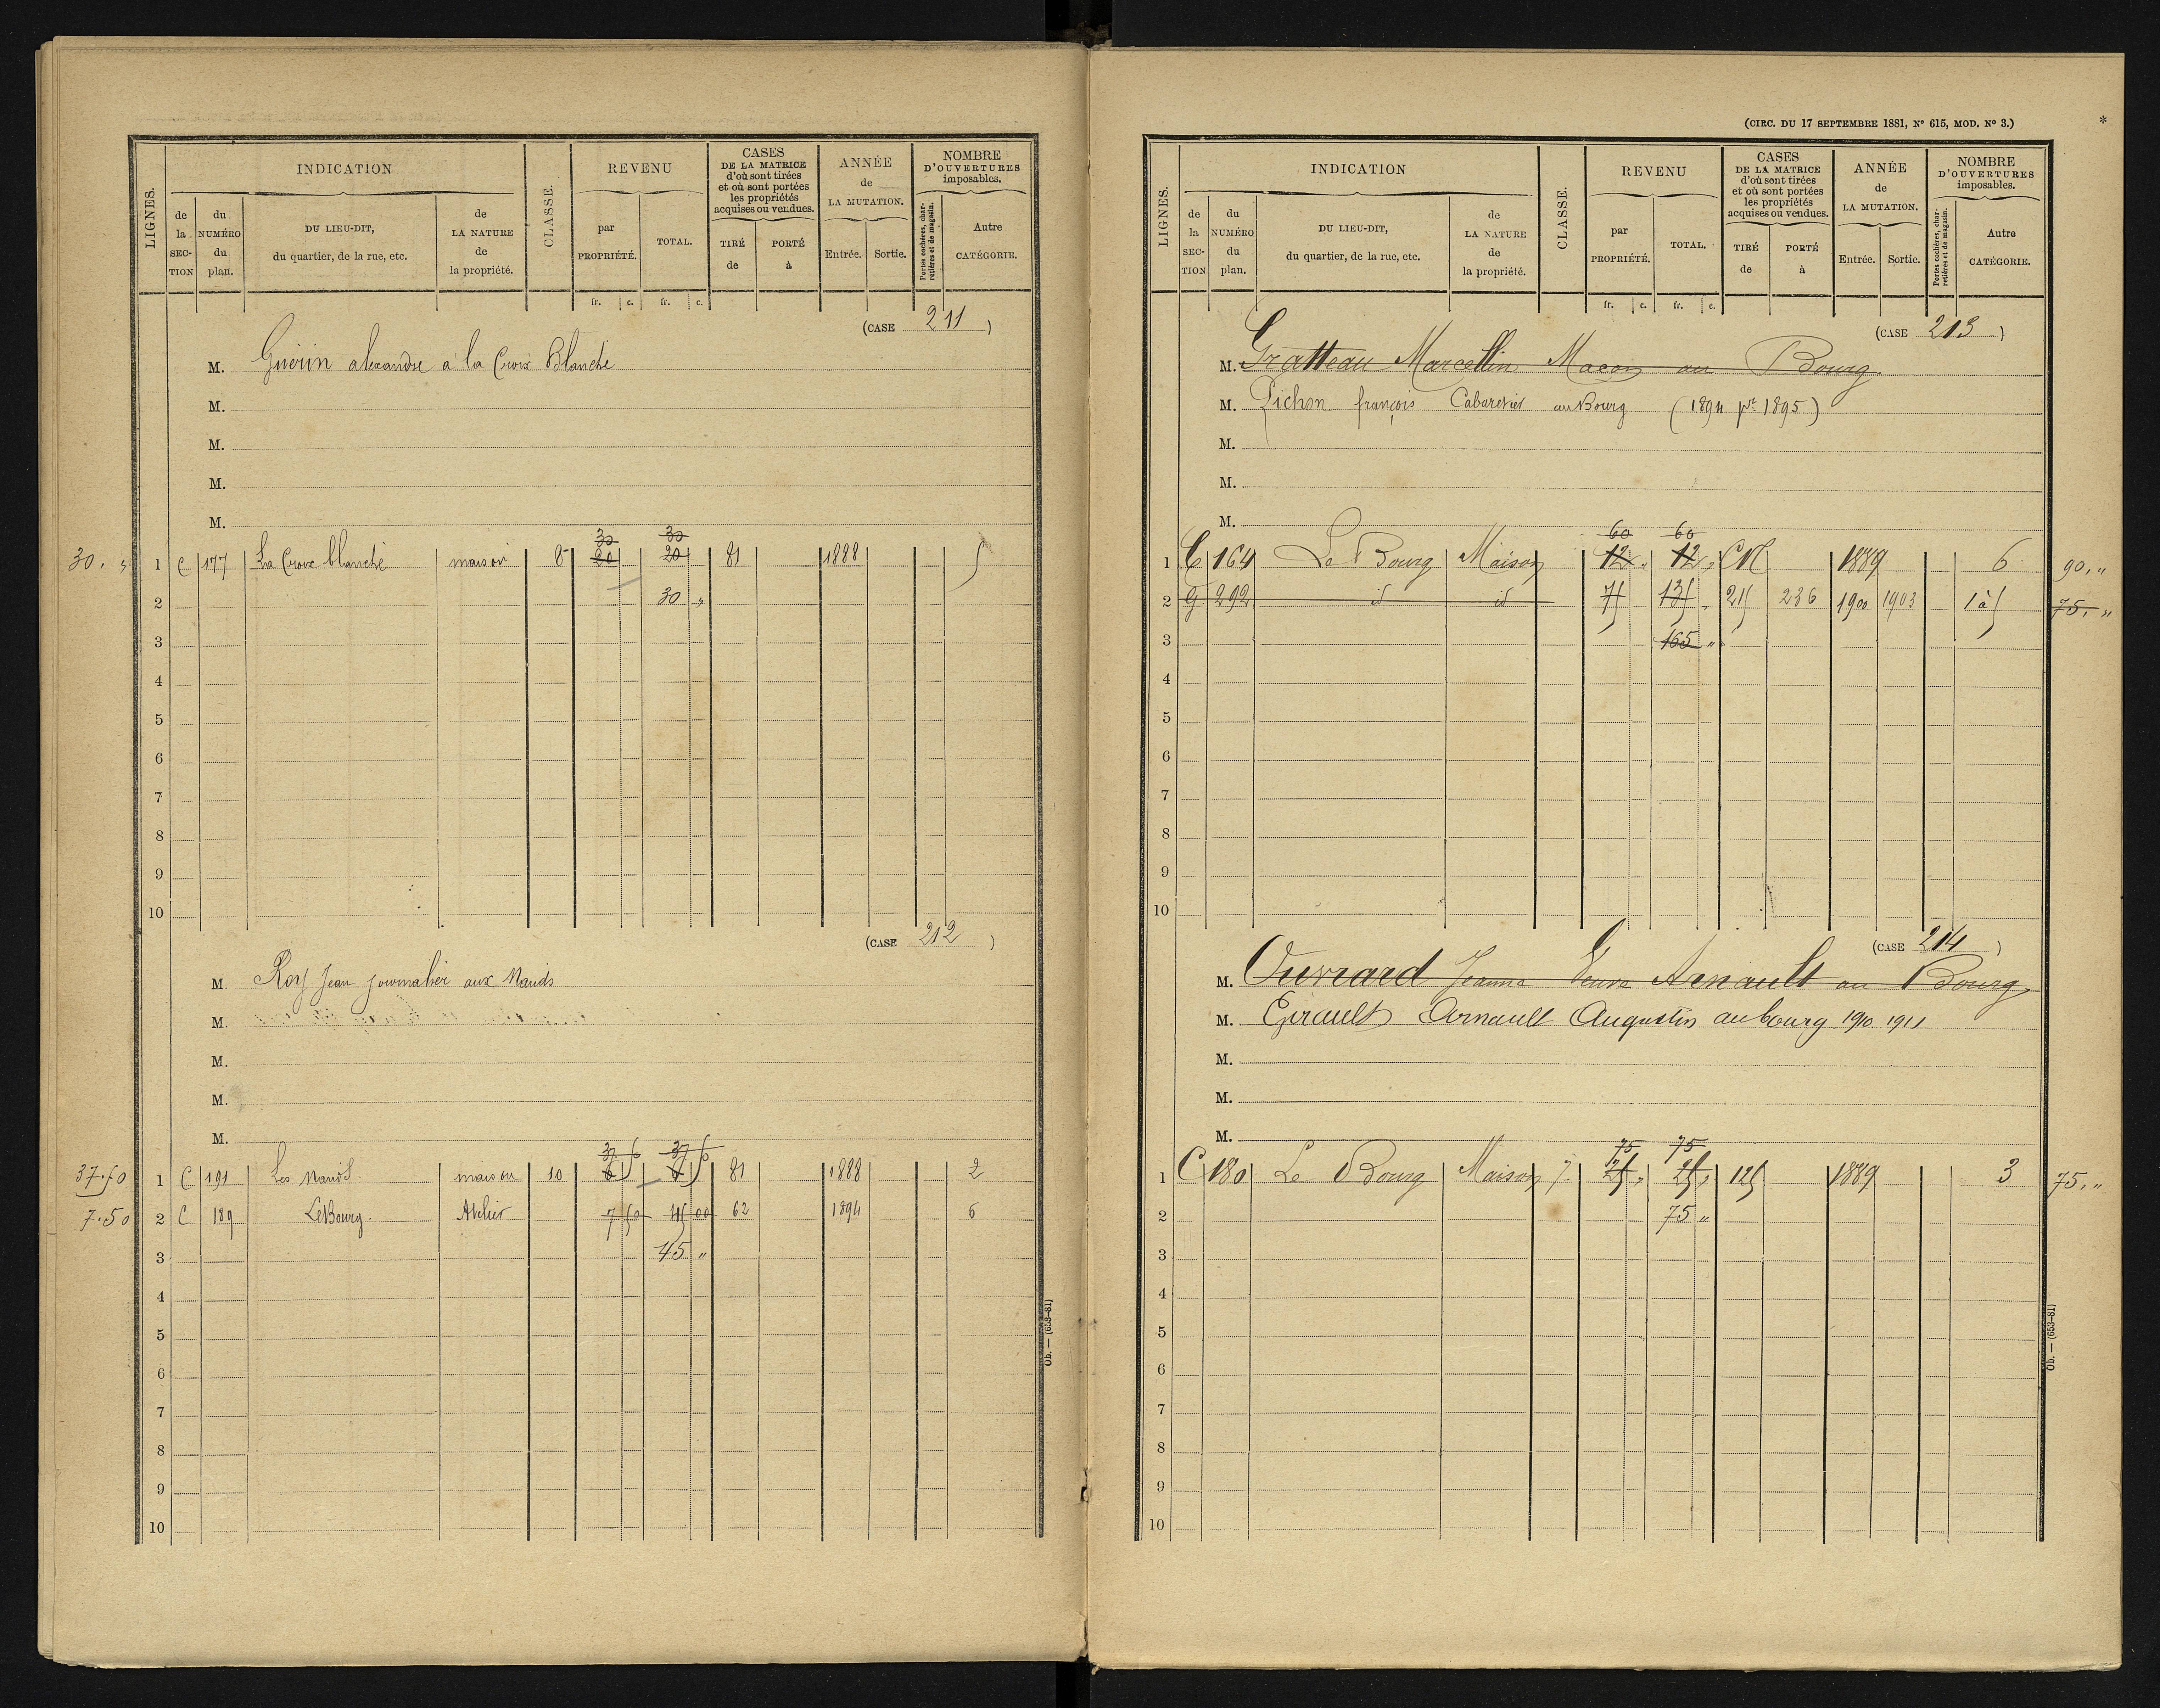 LIGNES.
INDICATION
de la SECTION
du NUMÉRO du plan.
DU LIEU-DIT, du quartier, de la rue, etc.
de LA NATURE de la propriété.
CLASSE.
REVENU
par PROPRIÉTÉ.
TOTAL.
fr. c. fr. c.
CASES DE LA MATRICE d'où sont tirées et où sont portées les propriétés acquises ou vendues.
TIRÉ de
PORTÉ à
ANNÉE de LA MUTATION.
Entrée.
Sortie.
NOMBRE D'OUVERTURES imposables.
Portes cochères, charretières et de magasin.
Autre CATÉGORIE.
(CASE 211)
M. Guérin alexandre a la Croix Blanche
M.
M.
M.
M.
30 30
30. " 1 C 177 La Croix blanche maison 8 20 20 81 1888 5
2 30 "
3
4
5
6
7
8
9
10
(CASE 212)
M. Roy Jean journalier aux Nauds
M.
M.
M.
M.
37 50 37 50
37.50 1 C 191 Les Nauds maison 10 81 1888 2
7.50 2 C 189 Le Bourg. Atelier 7 50 45 00 62 1894 6
3 45 "
4
5
6
7
8
9
10
Ob. — (653-81)
(CIRC. DU 17 SEPTEMBRE 1881, No 615, MOD. No 3.)
*
LIGNES.
INDICATION
de la SECTION
du NUMÉRO du plan.
DU LIEU-DIT, du quartier, de la rue, etc.
de LA NATURE de la propriété.
CLASSE.
REVENU
par PROPRIÉTÉ.
TOTAL.
fr. c. fr. c.
CASES DE LA MATRICE d'où sont tirées et où sont portées les propriétés acquises ou vendues.
TIRÉ de
PORTÉ à
ANNÉE de LA MUTATION.
Entrée.
Sortie.
NOMBRE D'OUVERTURES imposables.
Portes cochères, charretières et de magasin.
Autre CATÉGORIE.
(CASE 213)
M. Gratteau Marcellin Maçon au Bourg
M. Pichon françois Cabaretier au Bourg (1894 pr 1895)
M.
M.
M.
60 60
1 C 164 Le Bourg Maison 12 " 12 " CN 1889 6 90, "
2 G 292 id id 75 135 " 215 236 1900 1903 1 à 5 75, "
3 165 "
4
5
6
7
8
9
10
(CASE 214)
M. Ouvrard Jeanne Veuve Arnault au Bourg
M. Girault Arnault Augustin au bourg 1910 1911
M.
M.
M.
75 75
1 C 180 Le Bourg Maison 7 25 " 25 " 125 1889 3 75, "
2 75 "
3
4
5
6
7
8
9
10
Ob. — (653-81)